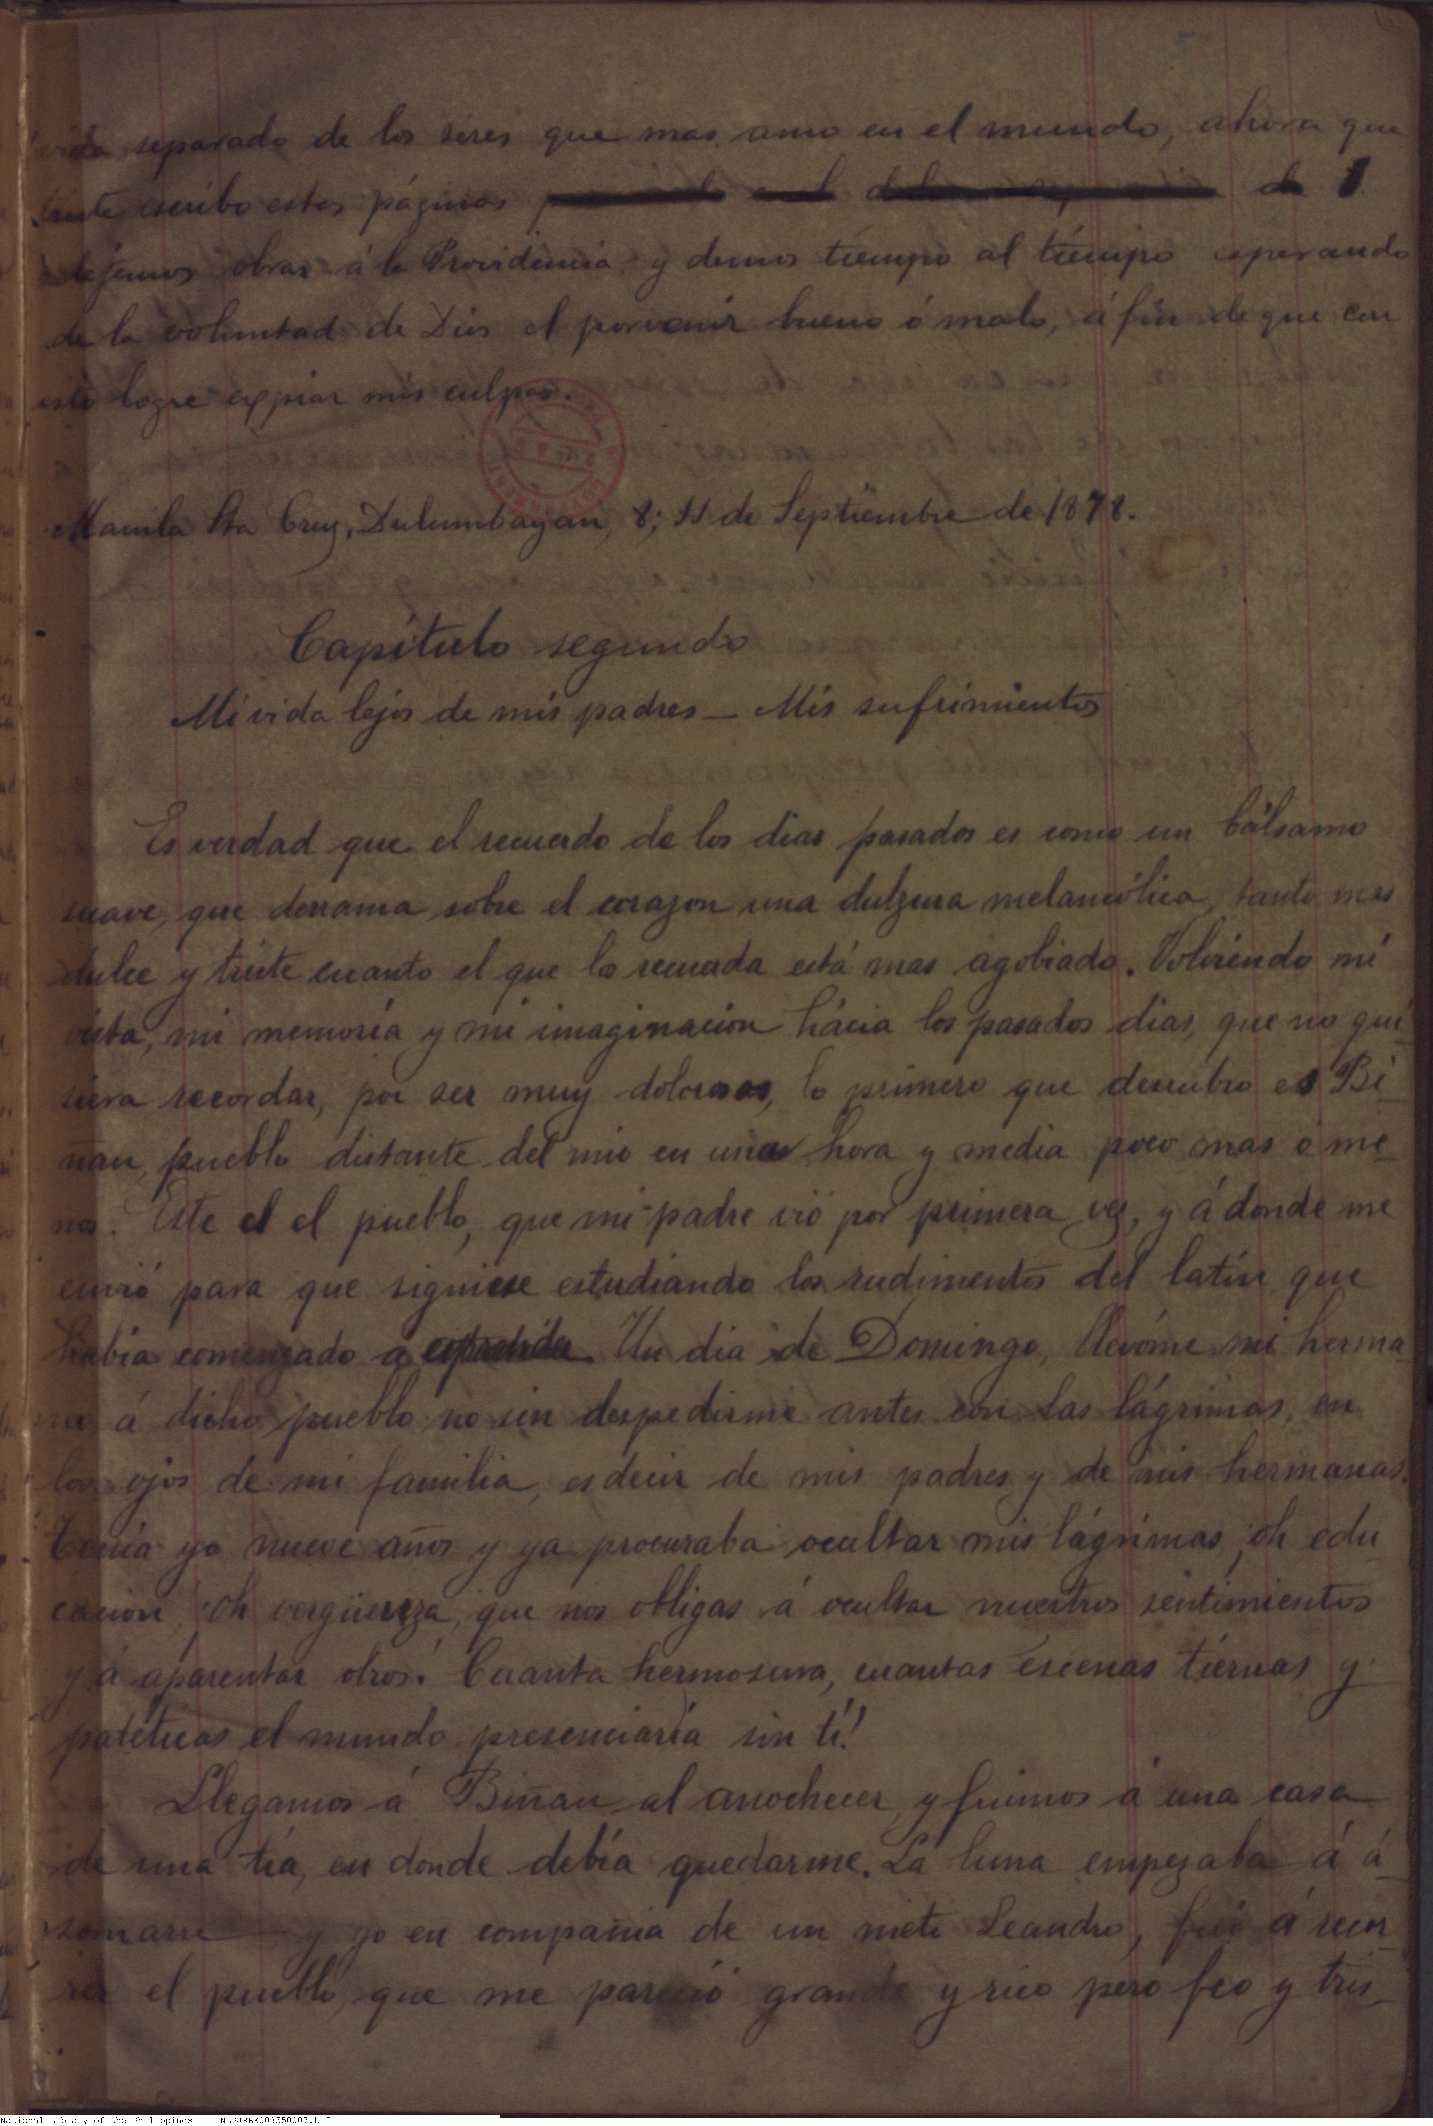 vida separado de los seres que mas amo en el mundo, ahora que
triste escribo estas páginas
dejemos obrar á la Providencia y demos tiempo al tiempo esperando
de la voluntad de Dios el porvenir bueno ó malo, á fin de que con
esto logre expiar mis culpas.
Manila Sta Cruz, Dulumbayan, 8; 11 de Septiembre de 1878.
Capítulo segundo
Mi vida lejos de mis padres — Mis sufrimientos
Es verdad que el recuerdo de los dias pasados es como un bálsamo
suave, que derrama sobre el corazon una dulzura melancólica, tanto mas
dulce y triste cuanto el que lo recuerda está mas agobiado. Volviendo mi
vista, mi memoria y mi imaginacion hácia los pasados dias, que no qui
siera recordar, por ser muy dolorosos, lo primero que descubro es Bi_
ñan, pueblo distante del mio en una hora y media poco mas o me_
nos. Este es el pueblo, que mi padre vió por primera vez, y á donde me
envió para que siguiese estudiando los rudimentos del latin que
habia comenzado á Un dia de Domingo, llevóme mi herma_
no á dicho pueblo no sin despedirme antes con las lágrimas, en
los ojos de mi familia, es decir de mis padres y de mis hermanas.
Tenía yo nueve años y ya procuraba ocultar mis lágrimas, ¡oh edu
cacion, ¡oh vergüenza, que nos obligas á ocultar nuestros sentimientos
y á aparentar otros! Cuanta hermosura, cuantas escenas tiernas y
patéticas el mundo presenciaría sin tí!
Llegamos á Biñan al anochecer, y fuimos á una casa
de una tía, en donde debía quedarme. La luna empezaba á á_
somarse y yo en compañia de un nieto Leandro, fuí á recor_
rer el pueblo, que me pareció grande y rico pero feo y tris_
National Library of the Philippines